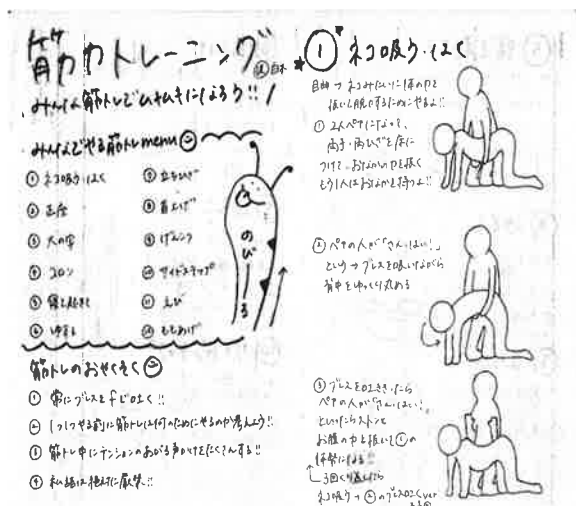 筋力トレーニング
みんな筋トレでムキムキになろう!!
みんなでやる筋トレmenu
① ネコ吸う・はく
② 正座
③ 大の字
④ コロン
⑤ 寝て起きて
⑥ ゆする
⑦ 立ちひざ
⑧ 首上げ
⑨ げんこつ
⑩ サイドステップ
⑪ えび
⑫ ももあげ
のびーーる
筋トレのおやくそく
① 常にブレスをfではく!!
② 1つ1つやる前に筋トレは何のためにやるのか考えよう!!
③ 筋トレ中にテンションのあがる声かけをたくさんする!!
④ 私語は絶対に厳禁!!
① ネコ吸う・はく
目的→ネコみたいに体の力を
抜いて
① 2人ペアになって、
両手・両ひざを床に
つけて、おなかの力を抜く
もう1人はおなかを持つよ!!
② ペアの人が「さん、はい!」
という→ブレスを吸いながら
背中をゆっくり丸める
③ ブレスを吐ききったら
ペアの人が「さん、はい!」
といったらストンと
お腹の力を抜いて①の
体勢になる!!
3回くり返したら
ネコ吸う→②のブレスはくver